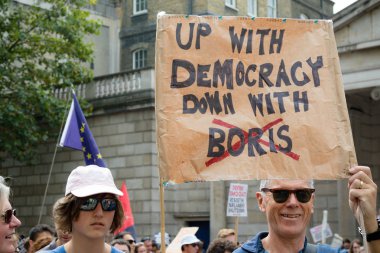 UP WITH
DEMOCRACY
DOWN WITH
BORIS